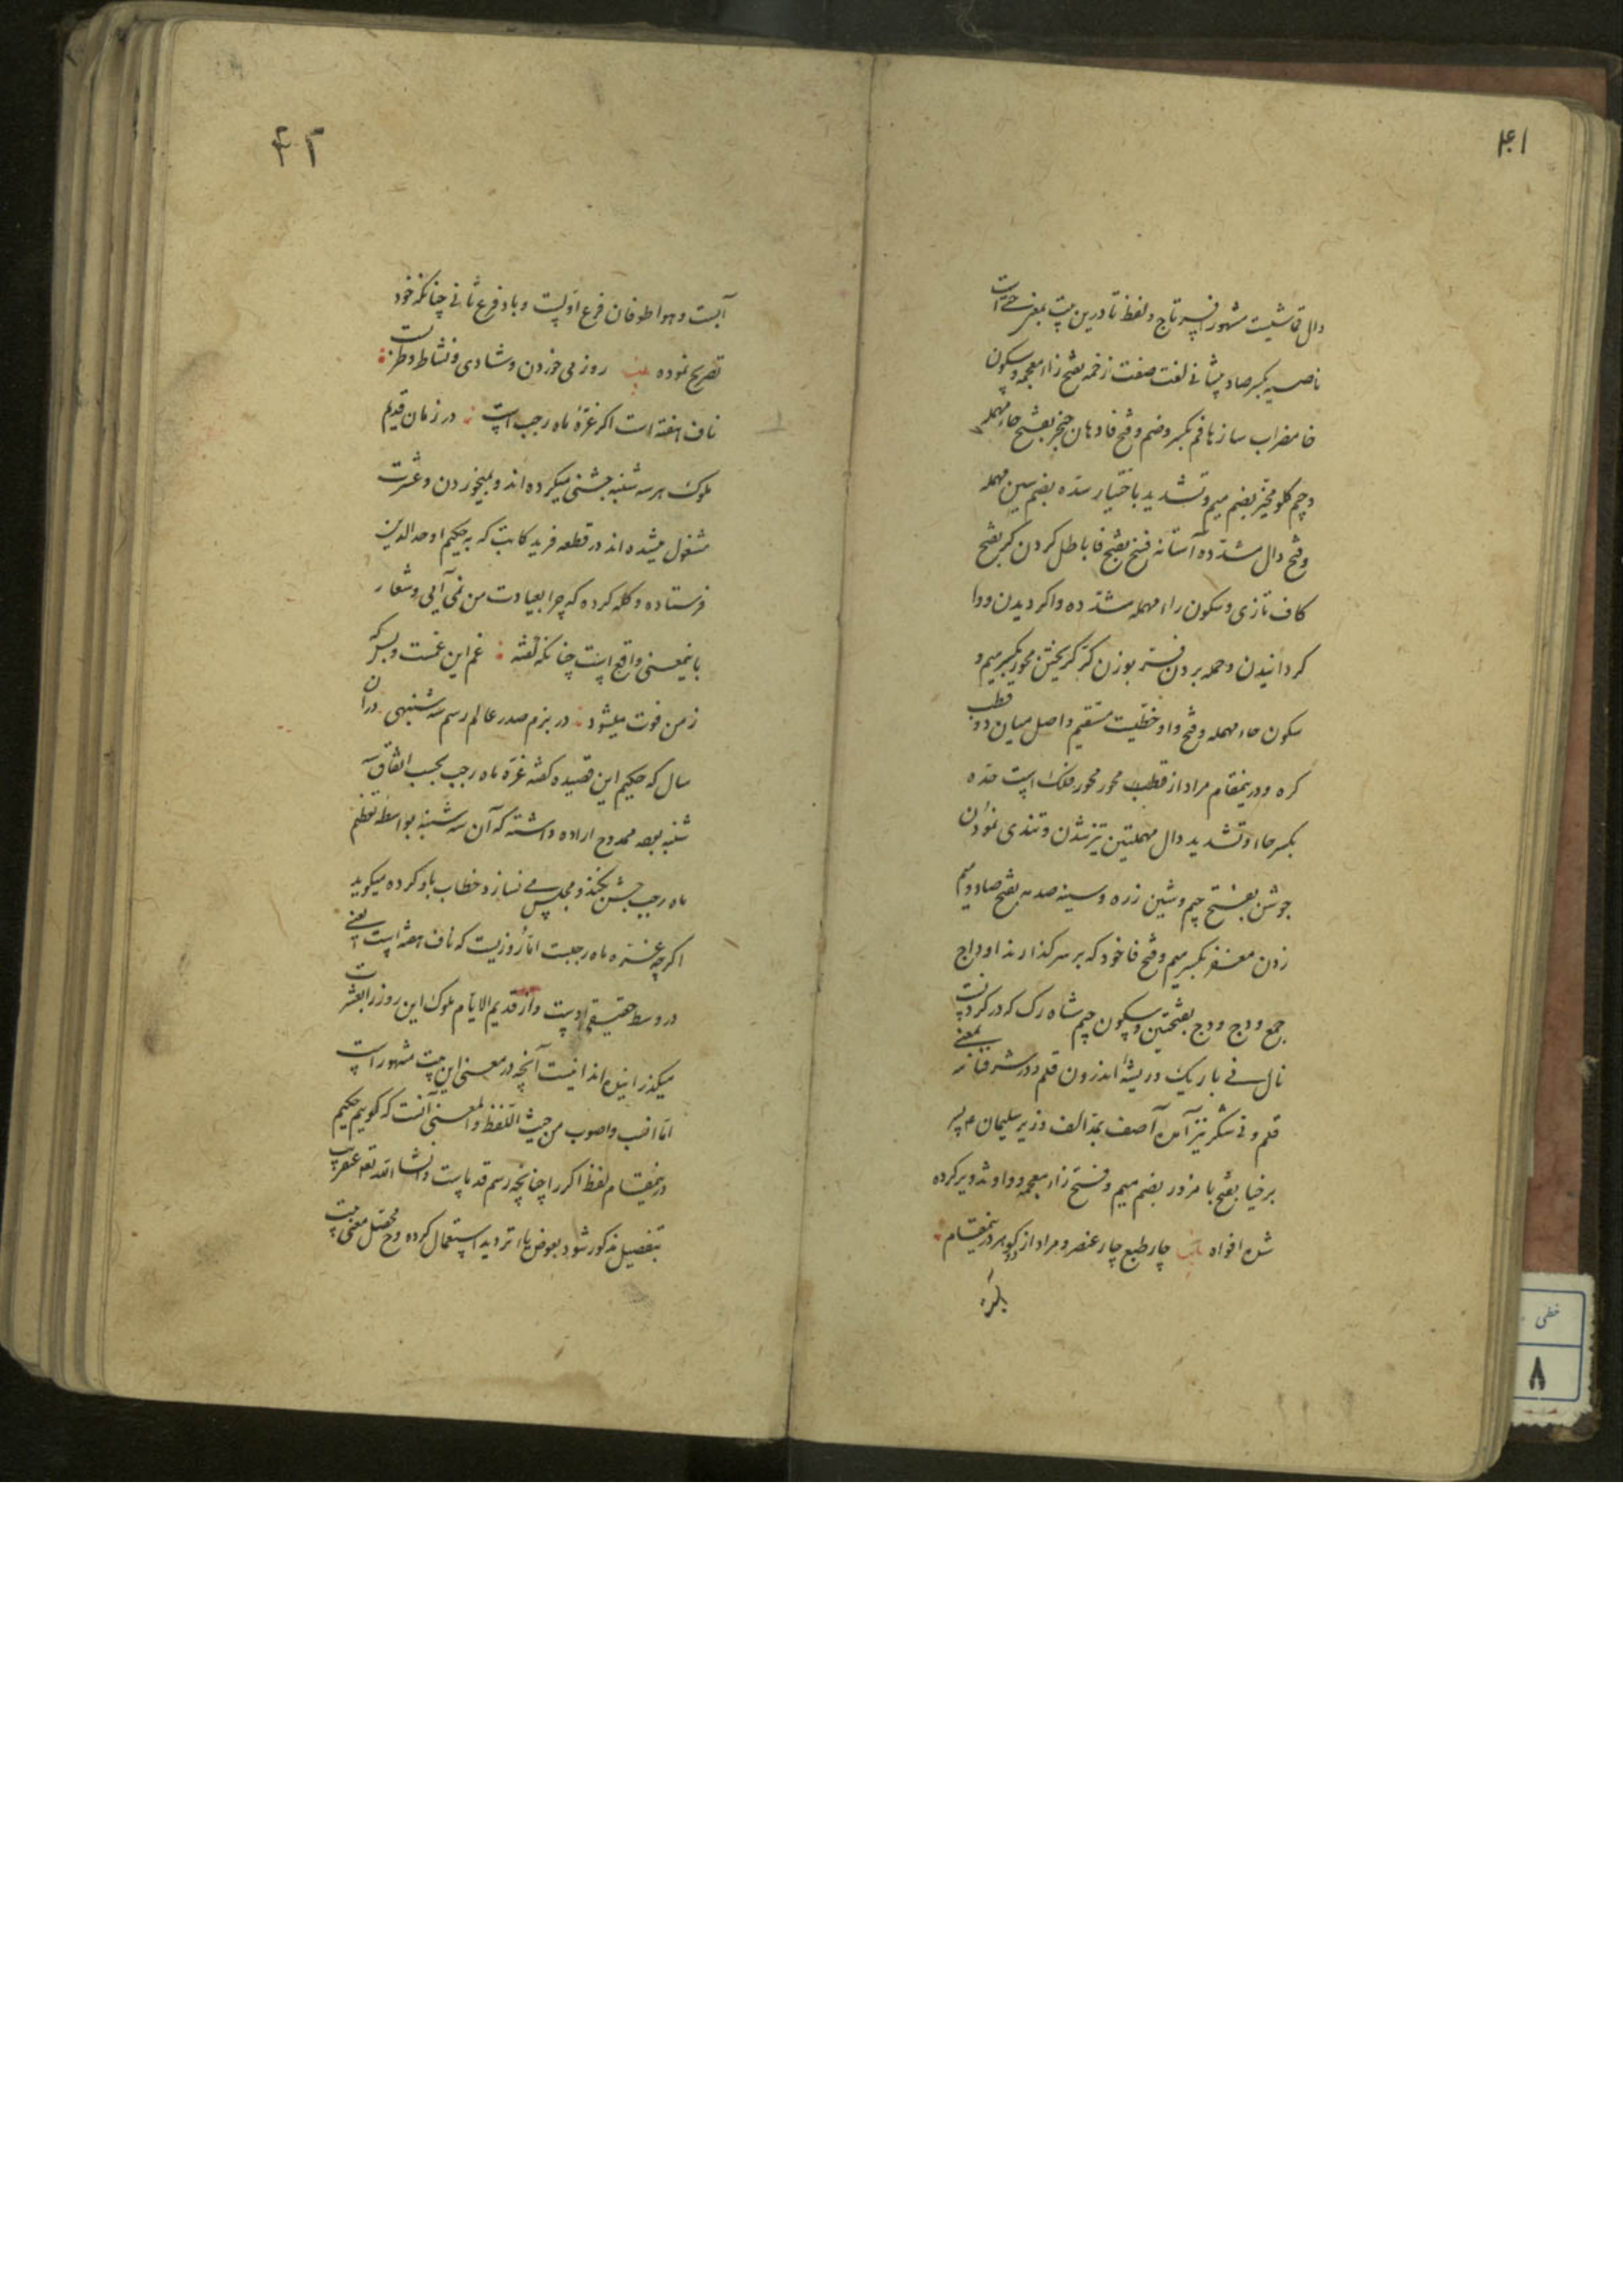 ۴۱
دال قماشیست مشهور افسر تاج و لفظ تا درین بیت بمعنی حتی است
ناصیه بکسر صاد پیشانی لغت صفت زخمه بفتح زاا معجمه و سکون
خا مضراب سازها فم بکسر و ضم و فتح فا دهان حنجر بفتح حاء مهمله
و جیم گلو مخیّر بضم میم و تشدید یا ختیار سدّه بضم سین مهمله
و فتح دال مشدّده آستانه فسخ بفتح فا باطل کردن کر بفتح
کاف تازی و سکون راء مهمله مشدّده واگردیدن و وا
گردانیدن و حمله بردن فر بوزن کر گریختن محور بکسر میم و
سکون حاء مهمله و فتح واو خطّیست مستقیم واصل میان دو قطب
کره و درینمقام مراد از قطب محور محور فلک است حدّه
بکسر حاا و تشدید دال مهملتین تیز شدن و تندی نمودن
جوشن بفتح جیم و شین زره و سینه صدمه بفتح صاد و میم
زدن مغفر بکسر میم و فتح فا خود که بر سر گذارند اوداج
جمع ودج ودج بفتحتین و سکون جیم شاه رگ که در گردنست
نال نی باریک و ریشهٔ اندرون قلم و در شرفنامه بمعنی
قلم و نی شکر نیز آمده آصف بمدّ الف وزیر سلیمان ع پسر
برخیا بفتح با مزور بضم میم و فتح زاء معجمه و واو تزویر کرده
شده افواه چار طبع چار عنصر و مراد از دو گوهر درینمقام
بکره
۴۲
آبست و هوا طوفان فرع اولست و باد فرع ثانی چنانکه خود
تصریح نموده بیت روز می خوردن و شادی و نشاط و طربست
ناف هفته است اگر غرّهٔ ماه رجب است در زمان قدیم
ملوک هر سه شنبه جشنی میکرده اند و بمیخوردن و عشرت
مشغول میشده اند در قطعه فرید کاتب که به حکیم اوحد الدین
فرستاده و گله کرده که چرا بعیادت من نمی آیی و شعار
باینمعنی واقع است چنانکه گفته غم این غمست و بس که
ز من فوت میشود در بزم صدر عالم رسم سه شنبهی در آن
سال که حکیم این قصیده گفته غرّه ماه رجب بحسب اتفاق سه
شنبه بوده ممدوح اراده داشته که آن سه شنبه بواسطه تعظیم
ماه رجب جشن نکند و مجلس می نسازد خطاب باو کرده میگوید
اگرچه غرّه ماه رجبست امّا روزیست که ناف هفته است یعنی
در وسط حقیقی اوست و از قدیم الایّام ملوک این روز را بعشرت
میگذرانیده اند اینست آنچه در معنی این بیت مشهور است
امّا انسب و اصوب من حیث اللّفظ و المعنی آنست که گوییم حکیم
درینمقام لفظ اگر را چنانچه رسم قدماست و انشا الله تعه عنقریب
بتفصیل مذکور شود بعوض یاا تردید استعمال کرده و محصّل معنی بیت
خطی
۸